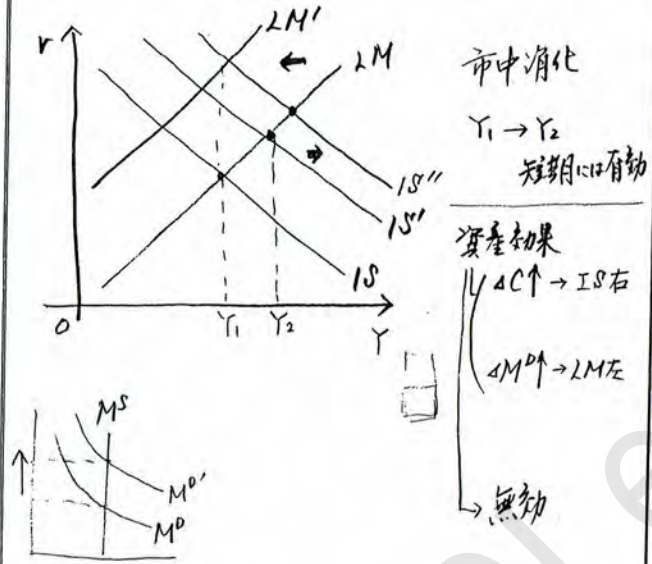 r
LM'
LM
IS''
IS'
IS
O
Y₁
Y₂
Y
市中消化
Y₁→Y₂
短期には有効
資産効果
⊿C↑→IS右
⊿Mᴰ↑→LM左
→無効
Mˢ
Mᴰ'
Mᴰ